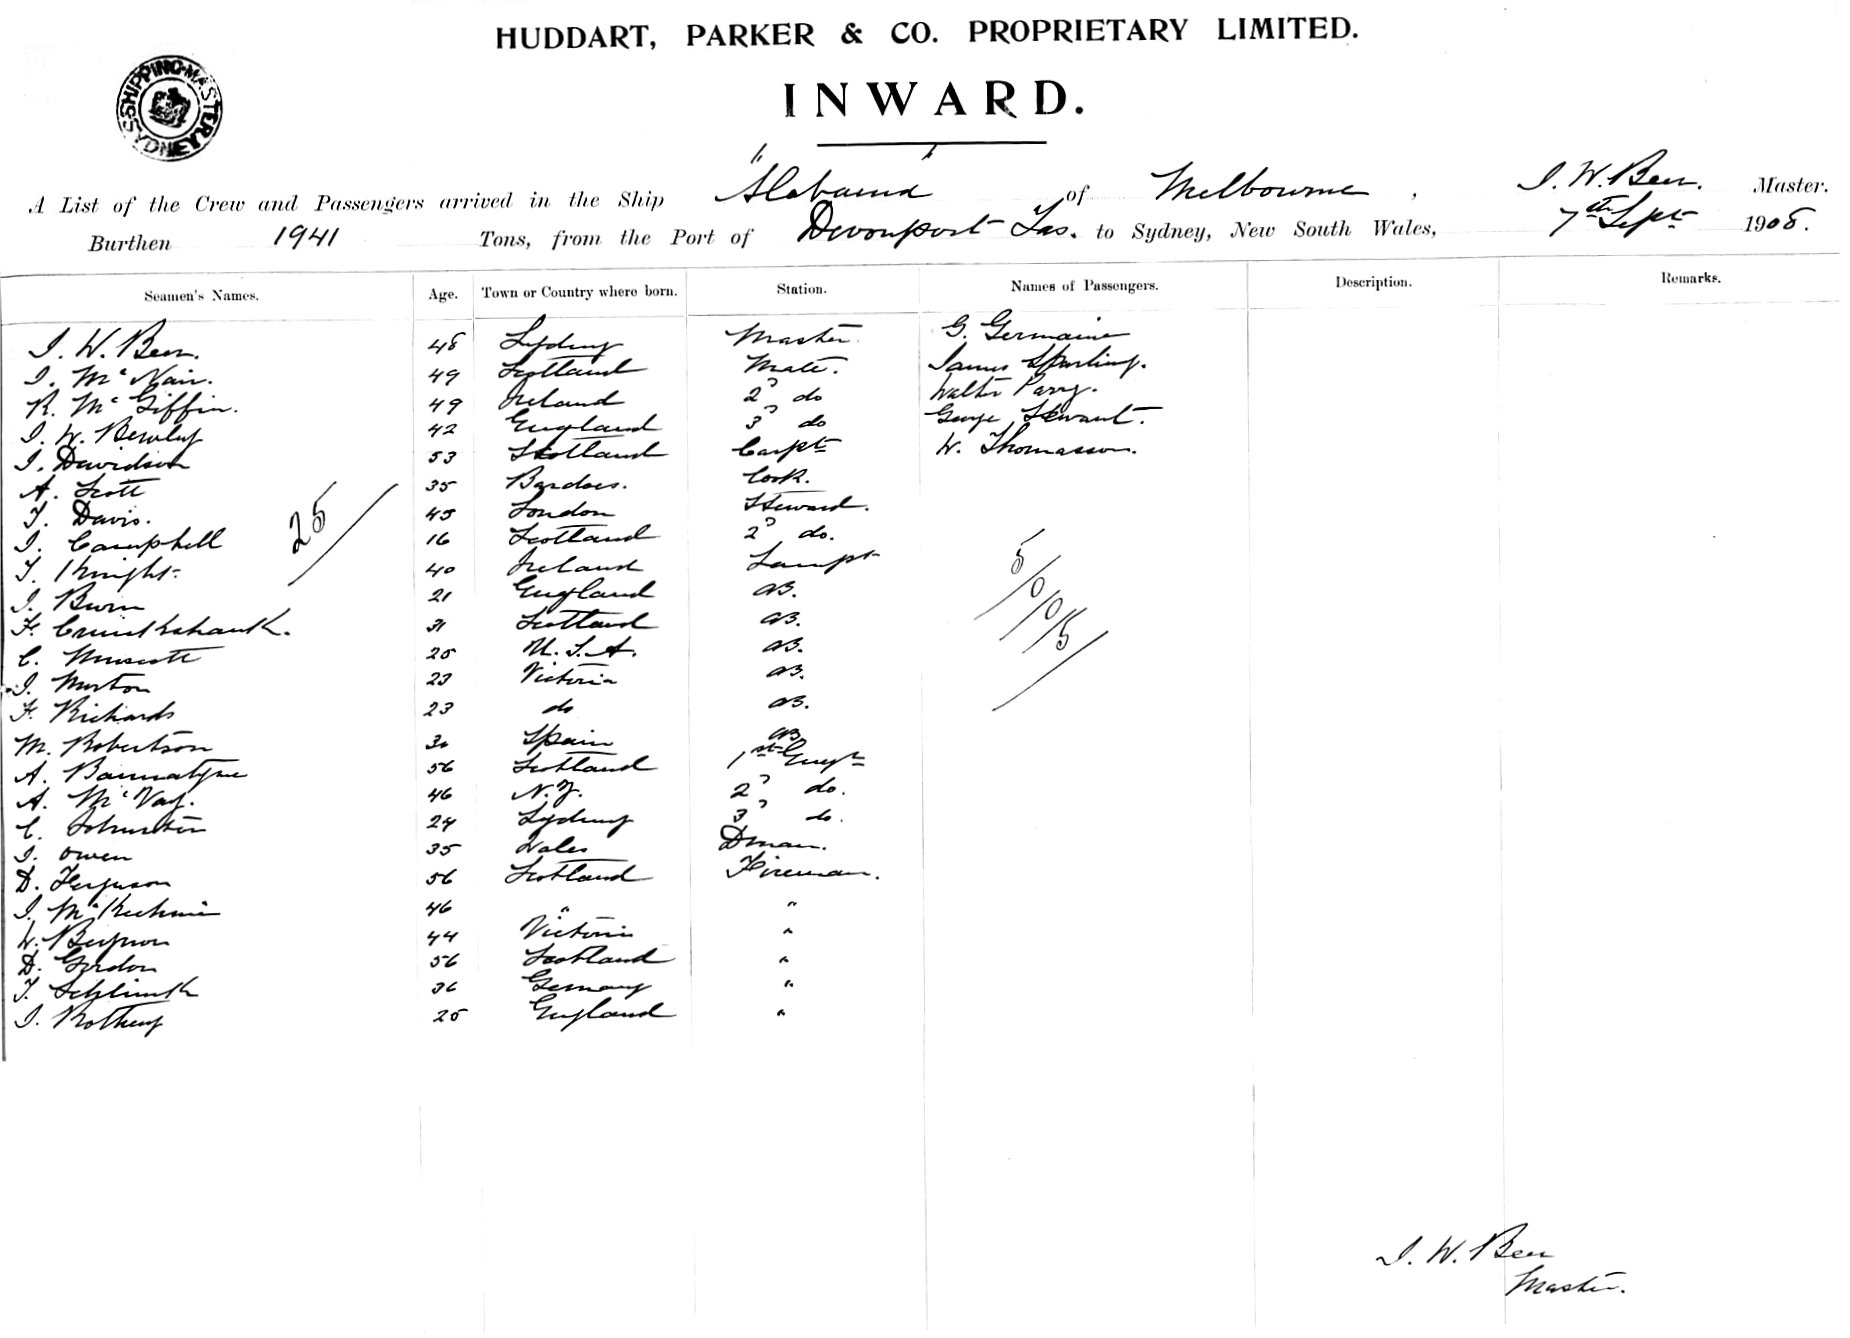 HUDDART, PARKER & CO. PROPRIETARY LIMITED.
INWARD.
SHIPPING MASTER SYDNEY
A List of the Crew and Passengers arrived in the Ship "Alabama" of Melbourne, J. W. Beer. Master.
Burthen 1941 Tons, from the Port of Devonport Tas. to Sydney, New South Wales, 7th Sept 1908.
Seamen's Names. Age. Town or Country where born. Station. Names of Passengers. Description. Remarks.
J. W. Beer. 48 Sydney Master. G. Germaine
J. McNair. 49 Scotland Mate. James Sparling.
R. McGiffin. 49 Ireland 2d do Walter Parry.
J. W. Bewley 42 England 3d do George Stewart.
J. Davidson 53 Scotland Carpt W. Thomasson.
A. Scott 35 Bardoes. Cook.
T. Davis. 45 London Steward.
J. Campbell 16 Scotland 2d do.
T. Knight. 40 Ireland Lampt
J. 21 England AB.
F. Cruickshank. 31 Scotland AB.
C. 25 U.S.A. AB.
J. Morton 23 Victoria AB.
F. Richards 23 do AB.
M. Robertson 30 Spain AB
A. Bannatyne 56 Scotland 1st Engr
A. McVay. 46 N.Z. 2d do.
C. Johnston 24 Sydney 3d do.
J. Owen 35 Wales Dman.
D. Ferguson 56 Scotland Fireman.
J. McKechnie 46 " "
W. 44 Victoria "
D. Gordon 56 Scotland "
T. 36 Germany "
J. 25 England "
25/
5/0/0/5/
J. W. Beer
Master.